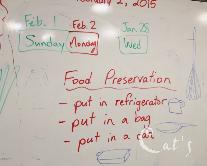 2, 2015
Feb. 1 Feb. 2 Jan. 28
Sunday Monday Wed
Food Preservation
- put in refrigerator
- put in a bag
- put in a can
Cat's